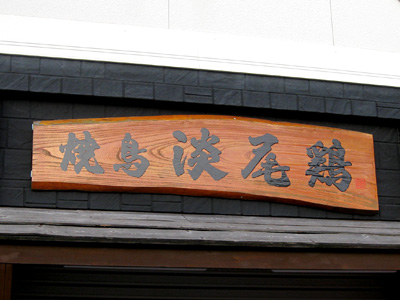 焼鳥淡尾鶏